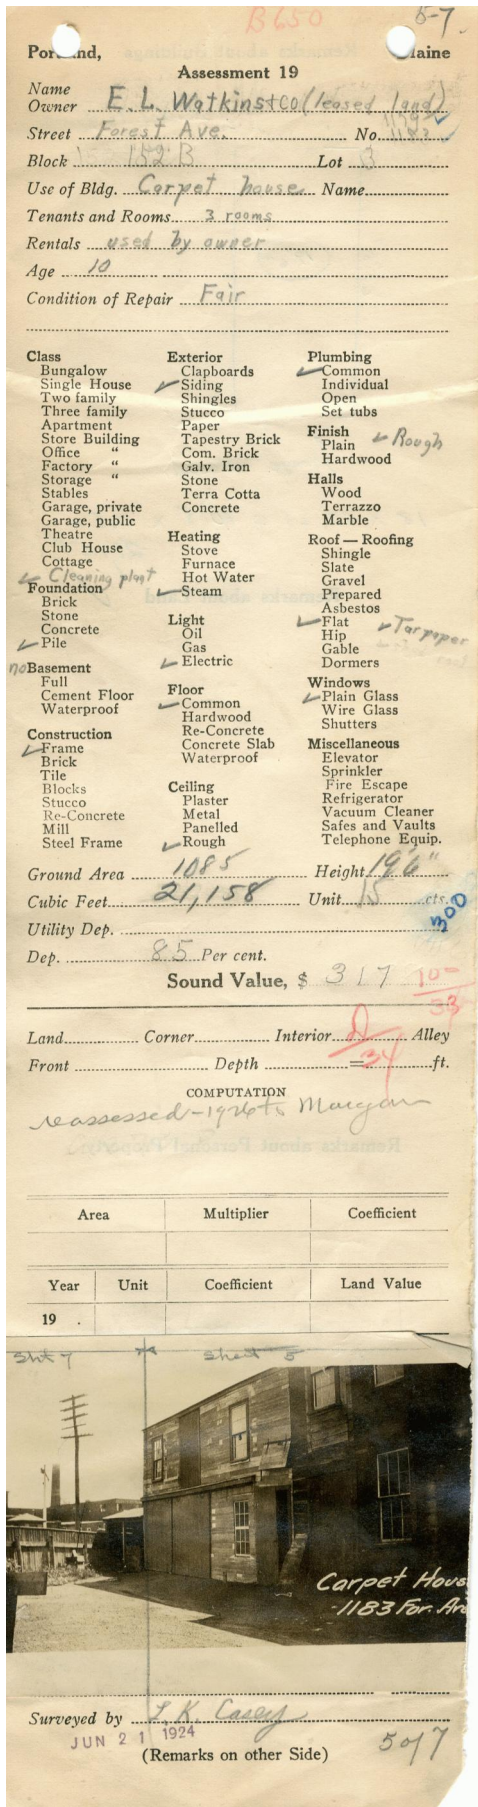 B650
5-7
Portland, Maine
Assessment 19
Name
Owner E. L. Watkins + Co (leased land)
Street Forest Ave. No. 1183
Block 152 B Lot 3
Use of Bldg. Carpet house Name
Tenants and Rooms 3 rooms
Rentals used by owner
Age 10
Condition of Repair Fair
Class
Bungalow
Single House
Two family
Three family
Apartment
Store Building
Office "
Factory "
Storage "
Stables
Garage, private
Garage, public
Theatre
Club House
Cottage
✓ Cleaning plant
Foundation
Brick
Stone
Concrete
✓ Pile
no Basement
Full
Cement Floor
Waterproof
Construction
✓ Frame
Brick
Tile
Blocks
Stucco
Re-Concrete
Mill
Steel Frame
Exterior
Clapboards
✓ Siding
Shingles
Stucco
Paper
Tapestry Brick
Com. Brick
Galv. Iron
Stone
Terra Cotta
Concrete
Heating
Stove
Furnace
Hot Water
✓ Steam
Light
Oil
Gas
✓ Electric
Floor
✓ Common
Hardwood
Re-Concrete
Concrete Slab
Waterproof
Ceiling
Plaster
Metal
Panelled
✓ Rough
Plumbing
✓ Common
Individual
Open
Set tubs
Finish
Plain ✓ Rough
Hardwood
Halls
Wood
Terrazzo
Marble
Roof — Roofing
Shingle
Slate
Gravel
Prepared
Asbestos
✓ Flat ✓ Tar paper
Hip
Gable
Dormers
Windows
✓ Plain Glass
Wire Glass
Shutters
Miscellaneous
Elevator
Sprinkler
Fire Escape
Refrigerator
Vacuum Cleaner
Safes and Vaults
Telephone Equip.
Ground Area 1085 Height 19'6"
Cubic Feet 21,158 Unit 15 cts.
300
Utility Dep.
Dep. 85 Per cent.
Sound Value, $ 317
10-
33
Land Corner Interior Alley
D
34
Front Depth = ft.
COMPUTATION
reassessed - 1926 to Morgan
Area Multiplier Coefficient
Year Unit Coefficient Land Value
19 .
Sht 7 Sheet 5
Carpet Hous
-1183 For. Ave
Surveyed by L. K. Casey
JUN 21 1924
(Remarks on other Side)
5 of 7